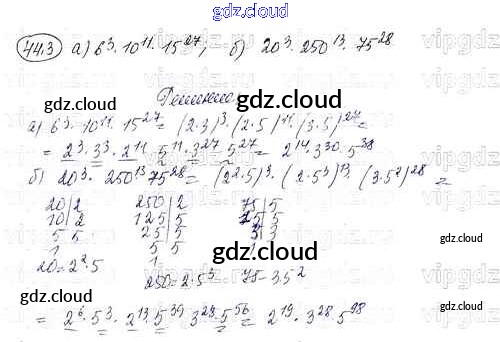 gdz.cloud
44.3 а) 6³·10¹¹·15²⁷, б) 20³·250¹³·75²⁸
gdz.cloud
Решение.
gdz.cloud
а) 6³·10¹¹·15²⁷ = (2·3)³·(2·5)¹¹·(3·5)²⁷ =
= 2³·3³·2¹¹·5¹¹·3²⁷·5²⁷ = 2¹⁴·3³⁰·5³⁸
б) 20³·250¹³·75²⁸ = (2²·5)³·(2·5³)¹³·(3·5²)²⁸ =
20|2 250|2 75|5
10|2 125|5 15|5
5|5 25|5 3|3
1 5|5 1
20=2²·5 1
250=2·5³ 75=3·5²
gdz.cloud
= 2⁶·5³·2¹³·5³⁹·3²⁸·5⁵⁶ = 2¹⁹·3²⁸·5⁹⁸
gdz.cloud